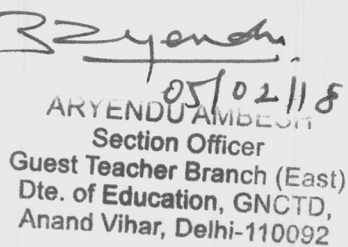 05/02/18
ARYENDU AMBESH
Section Officer
Guest Teacher Branch (East)
Dte. of Education, GNCTD,
Anand Vihar, Delhi-110092